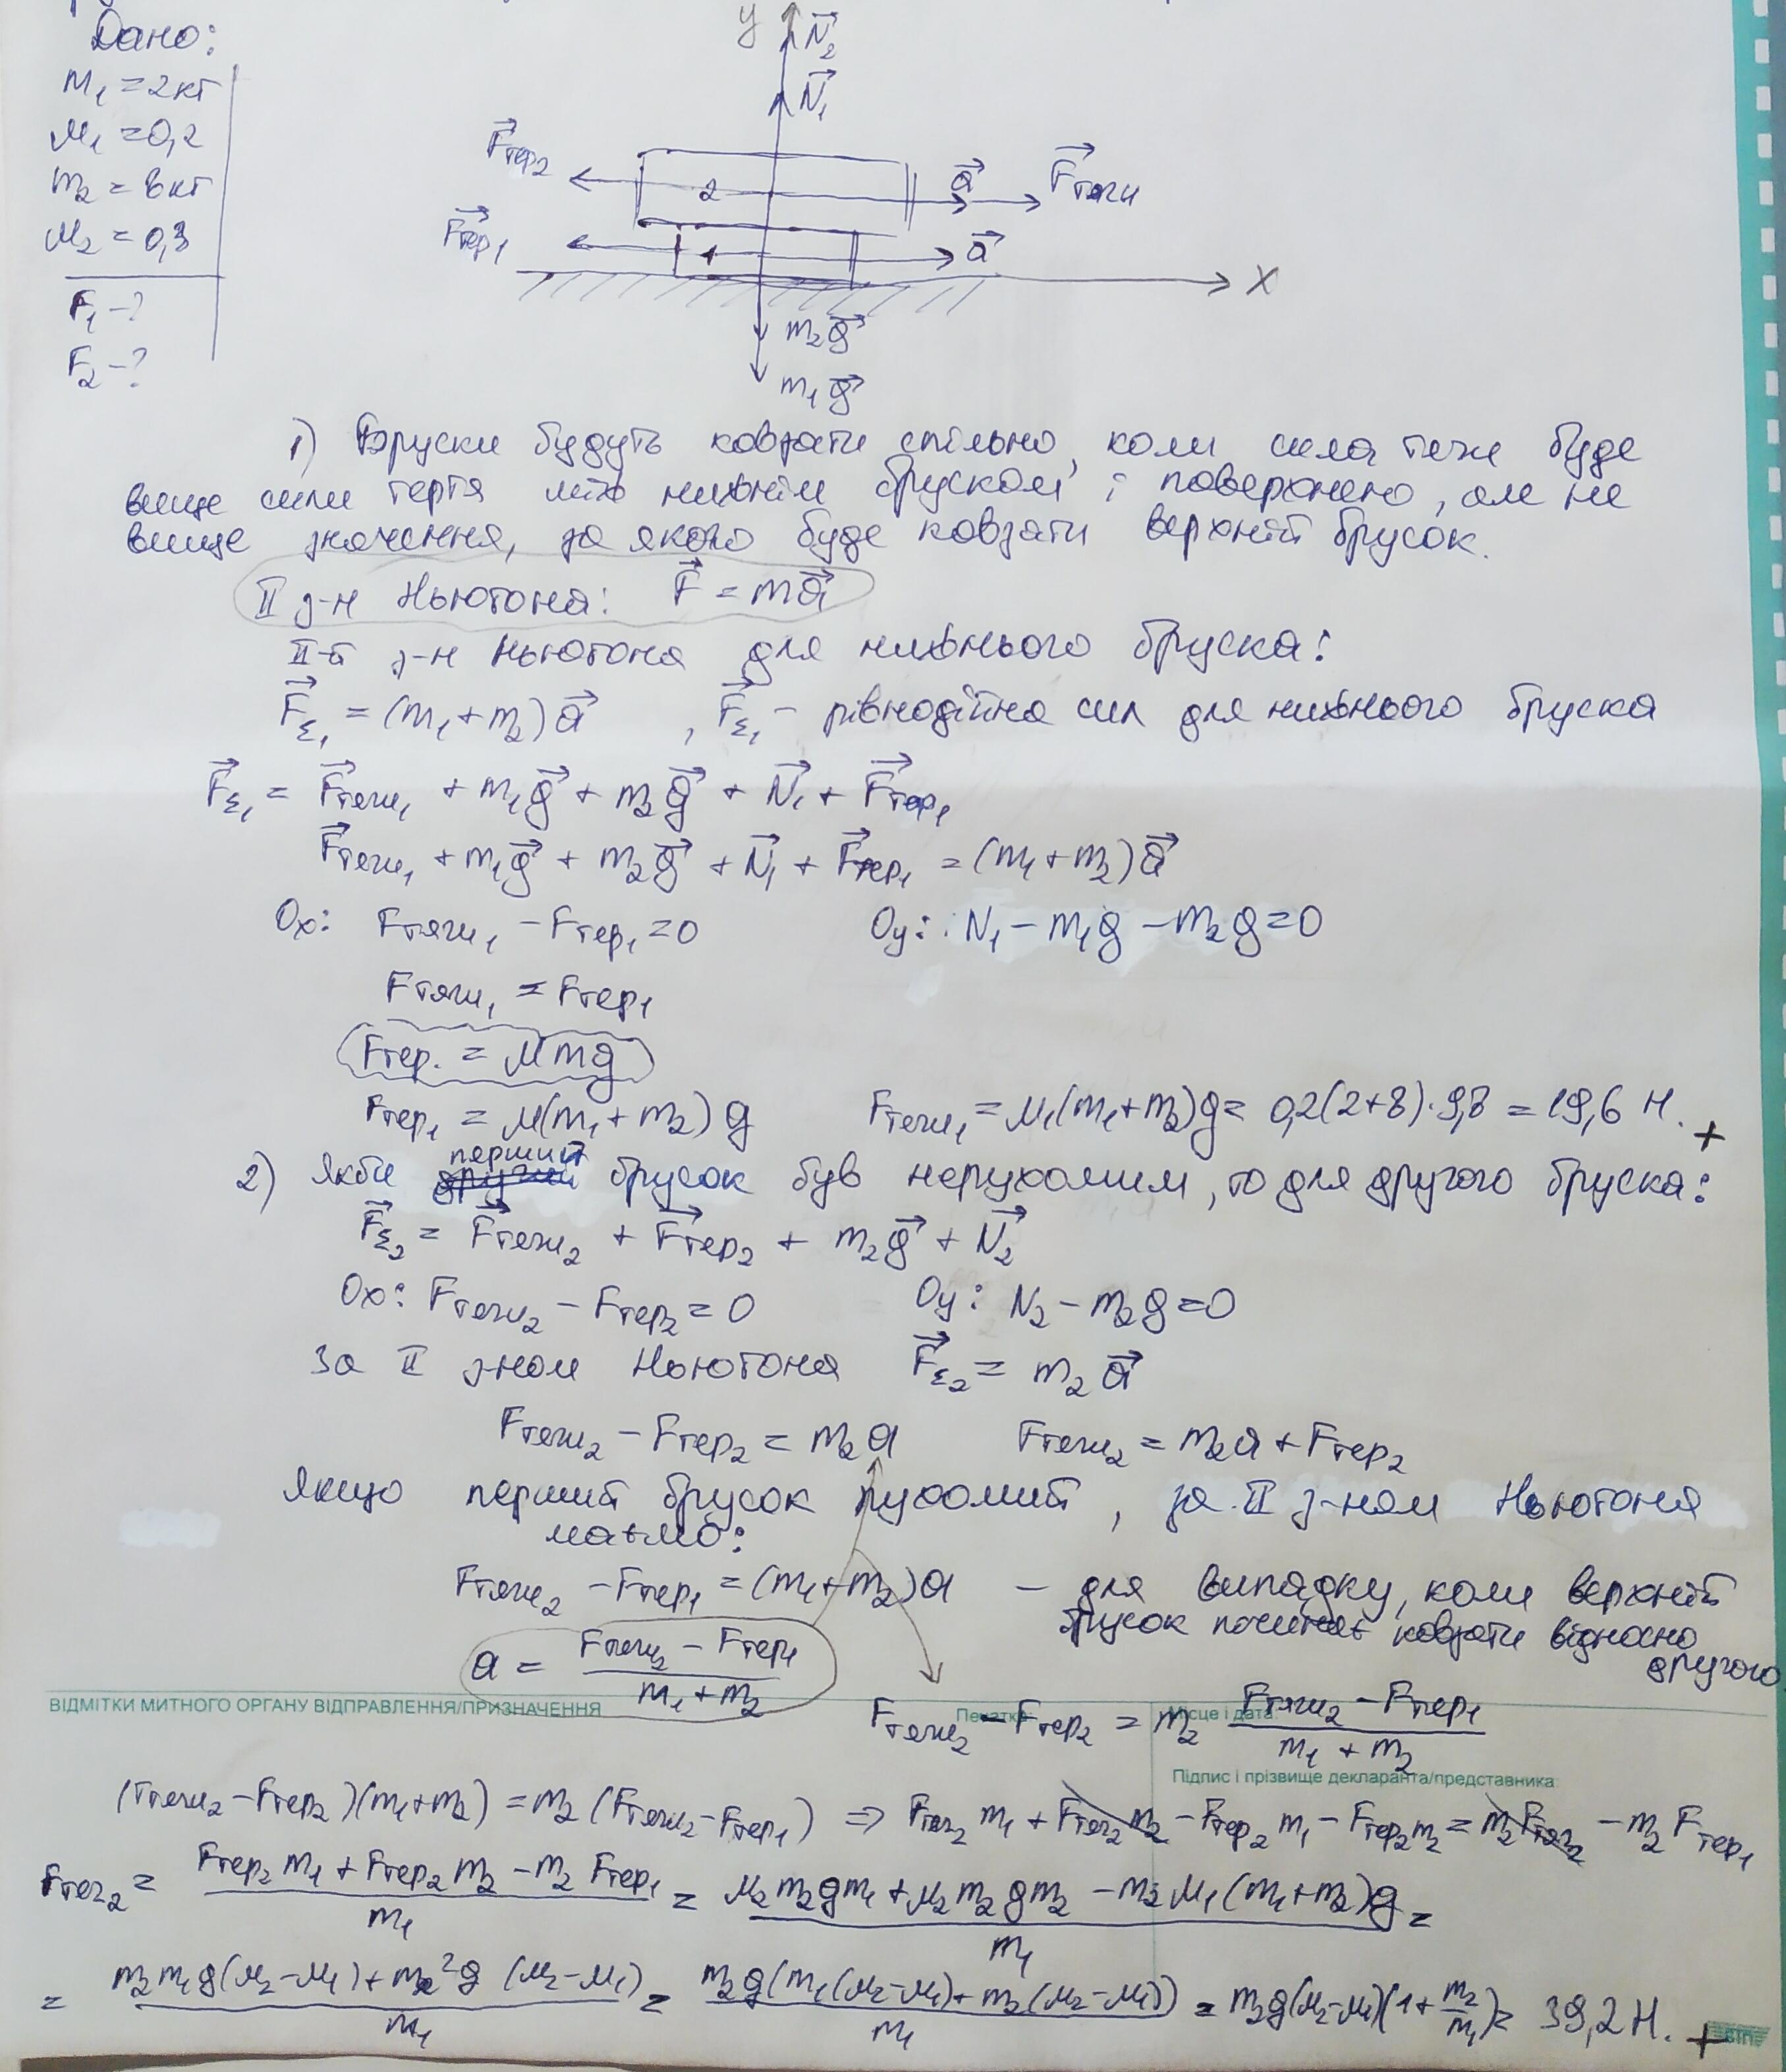 Дано:
m₁ = 2 кг
μ₁ = 0,2
m₂ = 8 кг
μ₂ = 0,3
F₁ - ?
F₂ - ?
y N⃗₂
N⃗₁
F⃗тер₂ 2 a⃗ F⃗тяги
F⃗тер₁ 1 a⃗
x
m₂g⃗
m₁g⃗
1) Бруски будуть ковзати спільно, коли сила тяги буде
вище сили тертя між нижнім бруском і поверхнею, але не
вище значення, за якого буде ковзати верхній брусок.
II з-н Ньютона: F⃗ = ma⃗
II-й з-н Ньютона для нижнього бруска:
F⃗Σ₁ = (m₁+m₂)a⃗ , F⃗Σ₁ - рівнодійна сил для нижнього бруска
F⃗Σ₁ = F⃗тяги₁ + m₁g⃗ + m₂g⃗ + N⃗₁ + F⃗тер₁
F⃗тяги₁ + m₁g⃗ + m₂g⃗ + N⃗₁ + F⃗тер₁ = (m₁+m₂)a⃗
Ox: Fтяги₁ - Fтер₁ = 0 Oy: N₁ - m₁g - m₂g = 0
Fтяги₁ = Fтер₁
Fтер. = μmg
Fтер₁ = μ(m₁+m₂)g Fтяги₁ = μ₁(m₁+m₂)g = 0,2(2+8)·9,8 = 19,6 Н. +
2) Якби перший брусок був нерухомим, то для другого бруска:
F⃗Σ₂ = F⃗тяги₂ + F⃗тер₂ + m₂g⃗ + N⃗₂
Ox: Fтяги₂ - Fтер₂ = 0 Oy: N₂ - m₂g = 0
За II з-ном Ньютона F⃗Σ₂ = m₂a⃗
Fтяги₂ - Fтер₂ = m₂a Fтяги₂ = m₂a + Fтер₂
Якщо перший брусок рухомий, за II з-ном Ньютона
маємо:
Fтяги₂ - Fтер₁ = (m₁+m₂)a - для випадку, коли верхній
брусок починає ковзати відносно
другого
a = (Fтяги₂ - Fтер₁)/(m₁+m₂)
ВІДМІТКИ МИТНОГО ОРГАНУ ВІДПРАВЛЕННЯ/ПРИЗНАЧЕННЯ Печатка: Місце і дата:
Fтяги₂ - Fтер₂ = m₂ (Fтяги₂ - Fтер₁)/(m₁+m₂)
Підпис і прізвище декларанта/представника:
(Fтяги₂ - Fтер₂)(m₁+m₂) = m₂(Fтяги₂ - Fтер₁) ⇒ Fтяг₂m₁ + Fтяг₂m₂ - Fтер₂m₁ - Fтер₂m₂ = m₂Fтяг₂ - m₂Fтер₁
Fтяг₂ = (Fтер₂m₁ + Fтер₂m₂ - m₂Fтер₁)/m₁ = (μ₂m₂gm₁ + μ₂m₂gm₂ - m₂μ₁(m₁+m₂)g)/m₁ =
= (m₂m₁g(μ₂-μ₁) + m₂²g(μ₂-μ₁))/m₁ = m₂g(m₁(μ₂-μ₁) + m₂(μ₂-μ₁))/m₁ = m₂g(μ₂-μ₁)(1 + m₂/m₁) = 39,2 Н. +